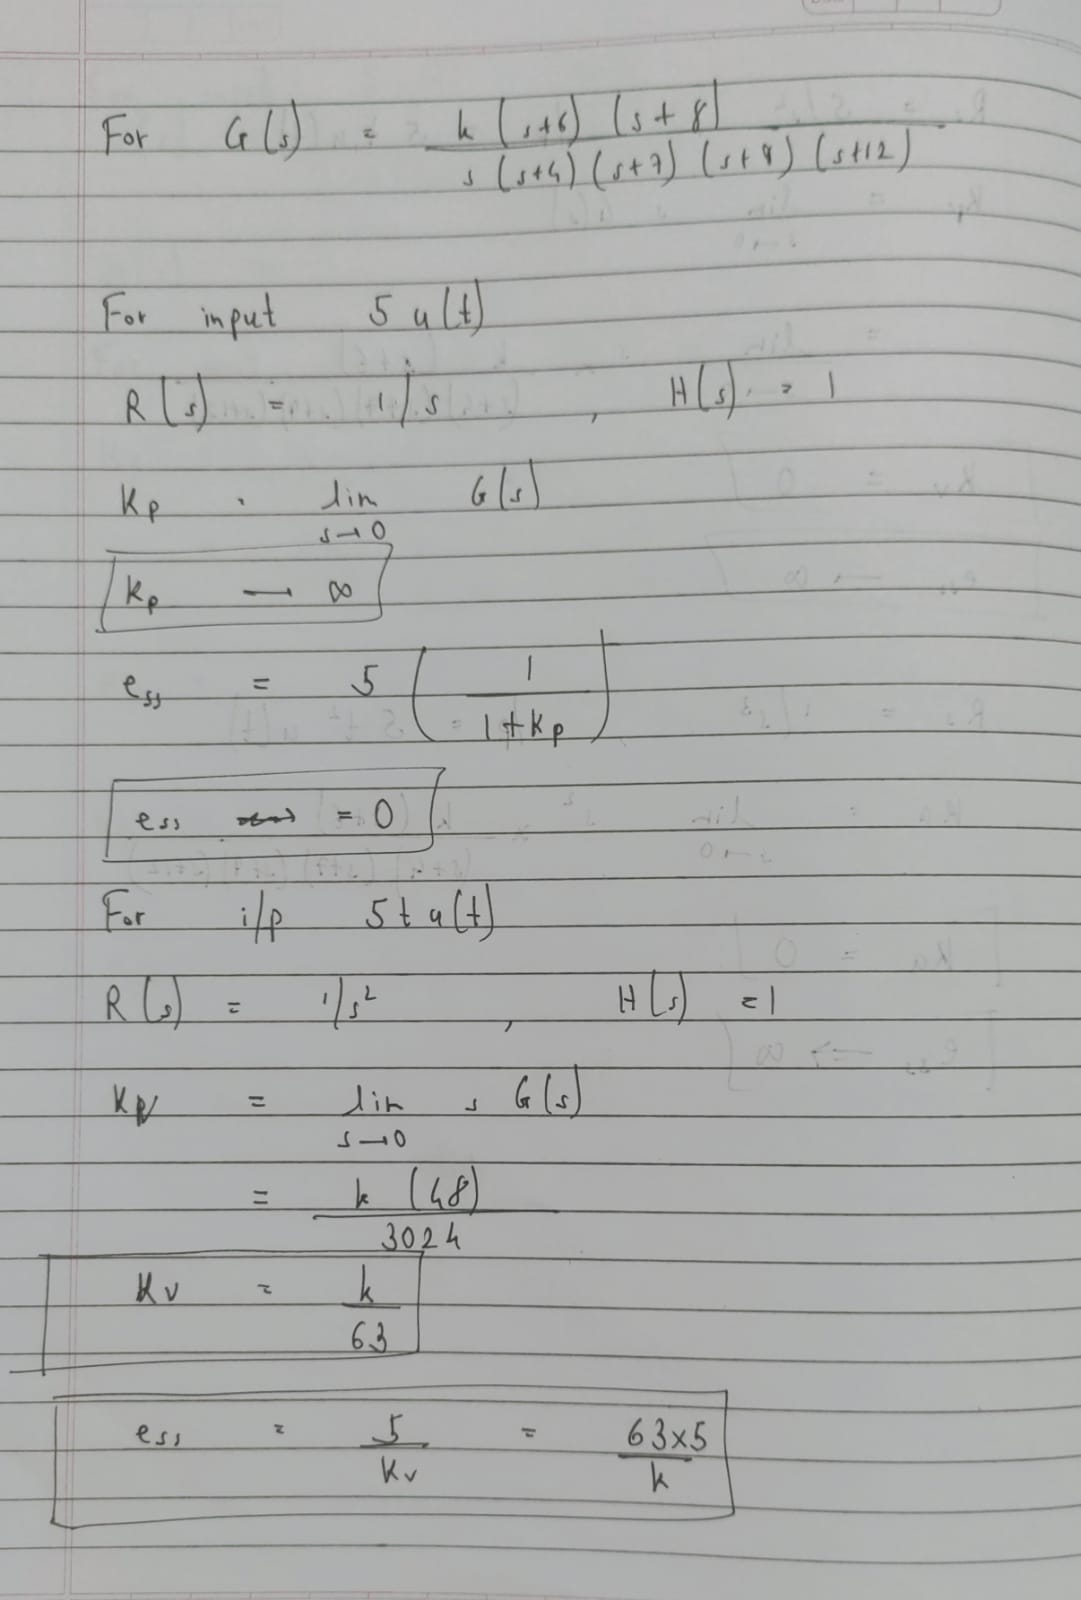 For G(s) = k (s+6) (s+8)
s (s+4) (s+7) (s+9) (s+12)
For input 5 u(t)
R(s) = 1/s , H(s) = 1
Kp = lim G(s)
s→0
Kp → ∞
ess = 5 ( 1
1+Kp )
ess = 0
For i/p 5 t u(t)
R(s) = 1/s² , H(s) = 1
Kv = lim s G(s)
s→0
= k (48)
3024
Kv = k
63
ess = 5 = 63×5
Kv k